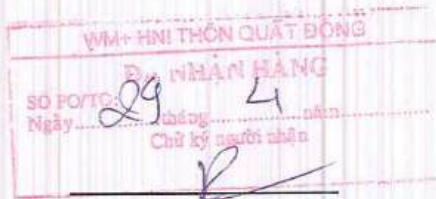 WM+ HNI THÔN QUẤT ĐỘNG
ĐÃ NHẬN HÀNG
SO PO/TO:
Ngày 29 tháng 4 năm
Chữ ký người nhận